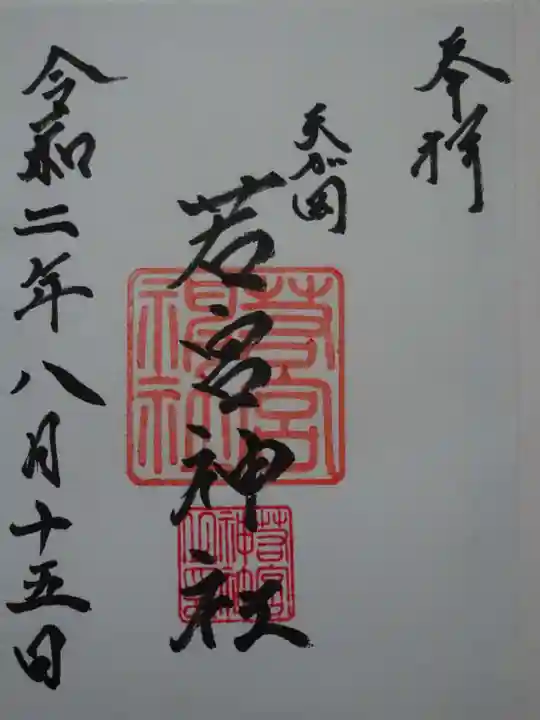 奉拝
天加岡
若宮神社
若宮神社
若宮神社
令和二年八月十五日